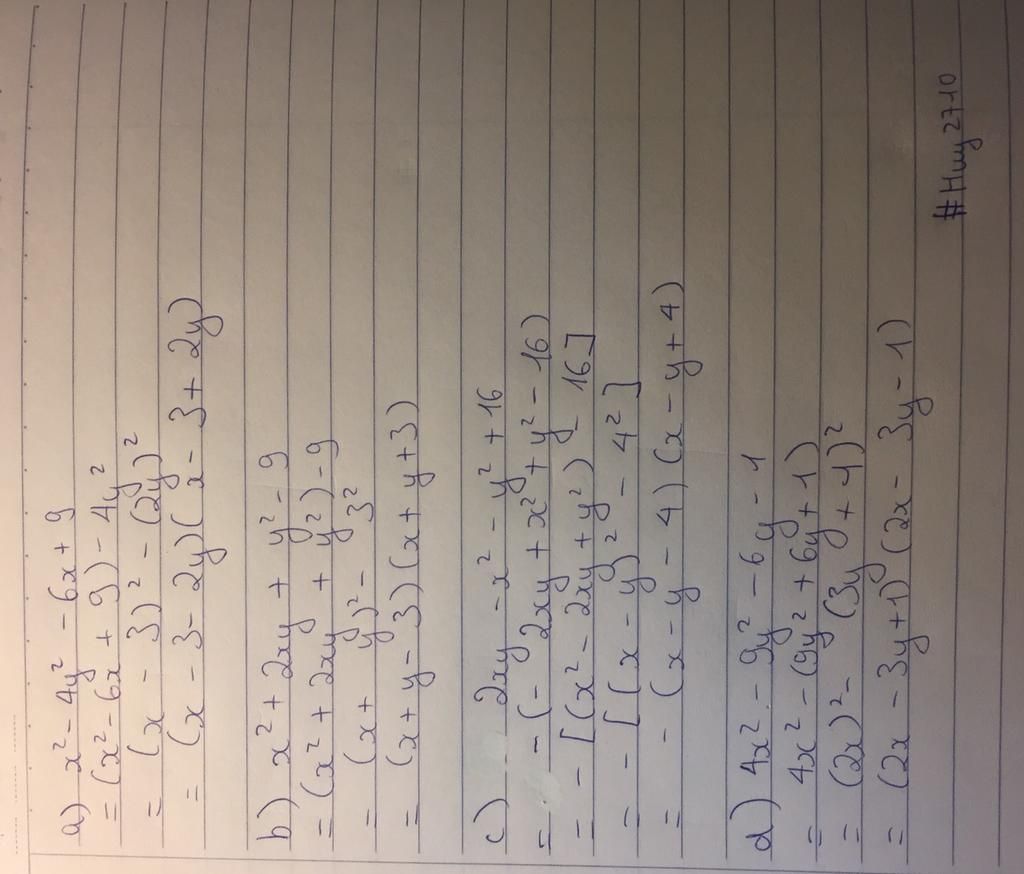 a) x² - 4y² - 6x + 9
= (x² - 6x + 9) - 4y²
= (x - 3)² - (2y)²
= (x - 3 - 2y)(x - 3 + 2y)
b) x² + 2xy + y² - 9
= (x² + 2xy + y²) - 9
= (x + y)² - 3²
= (x + y - 3)(x + y + 3)
c) 2xy - x² - y² + 16
= - (- 2xy + x² + y² - 16)
= - [(x² - 2xy + y²) - 16]
= - [(x - y)² - 4²]
= - (x - y - 4)(x - y + 4)
d) 4x² - 9y² - 6y - 1
= 4x² - (9y² + 6y + 1)
= (2x)² - (3y + 1)²
= (2x - 3y + 1)(2x - 3y - 1)
#Huy2710